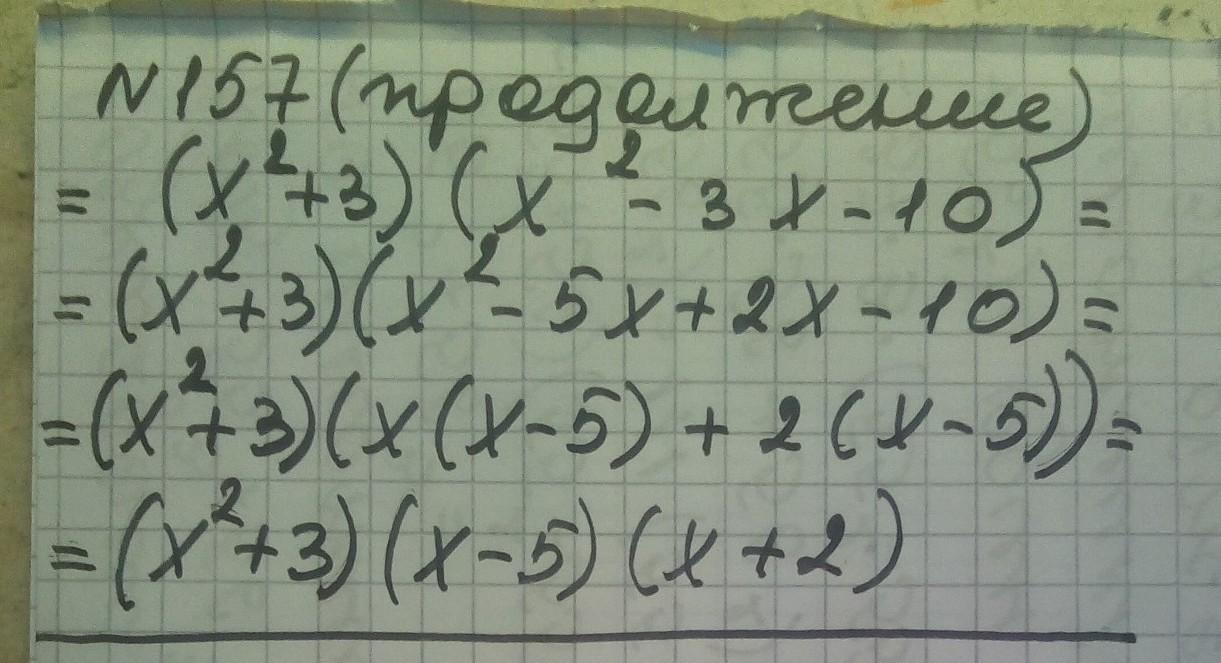 N157 (продолжение)
= (x²+3)(x²-3x-10) =
= (x²+3)(x²-5x+2x-10) =
= (x²+3)(x(x-5) + 2(x-5)) =
= (x²+3)(x-5)(x+2)